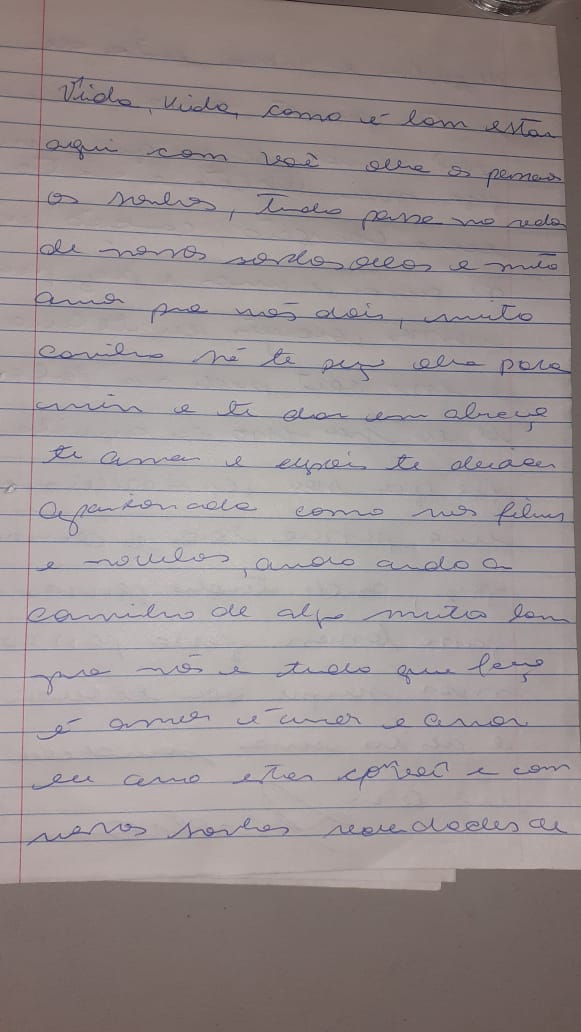 Vida, Vida, como é bom estar
aqui com você olha os
os sonhos, Tudo passa no
de nossos e muito
amor pra nós dois, muito
carinho só te peço olha para
mim e te dar um abraço
te amar e depois te deixar
apaixonada como nos filmes
e novelas, ando ando a
caminho de algo muito bom
pra nós e tudo que faço
é amar é amor e amor
eu amo estar e com
nossos sonhos de